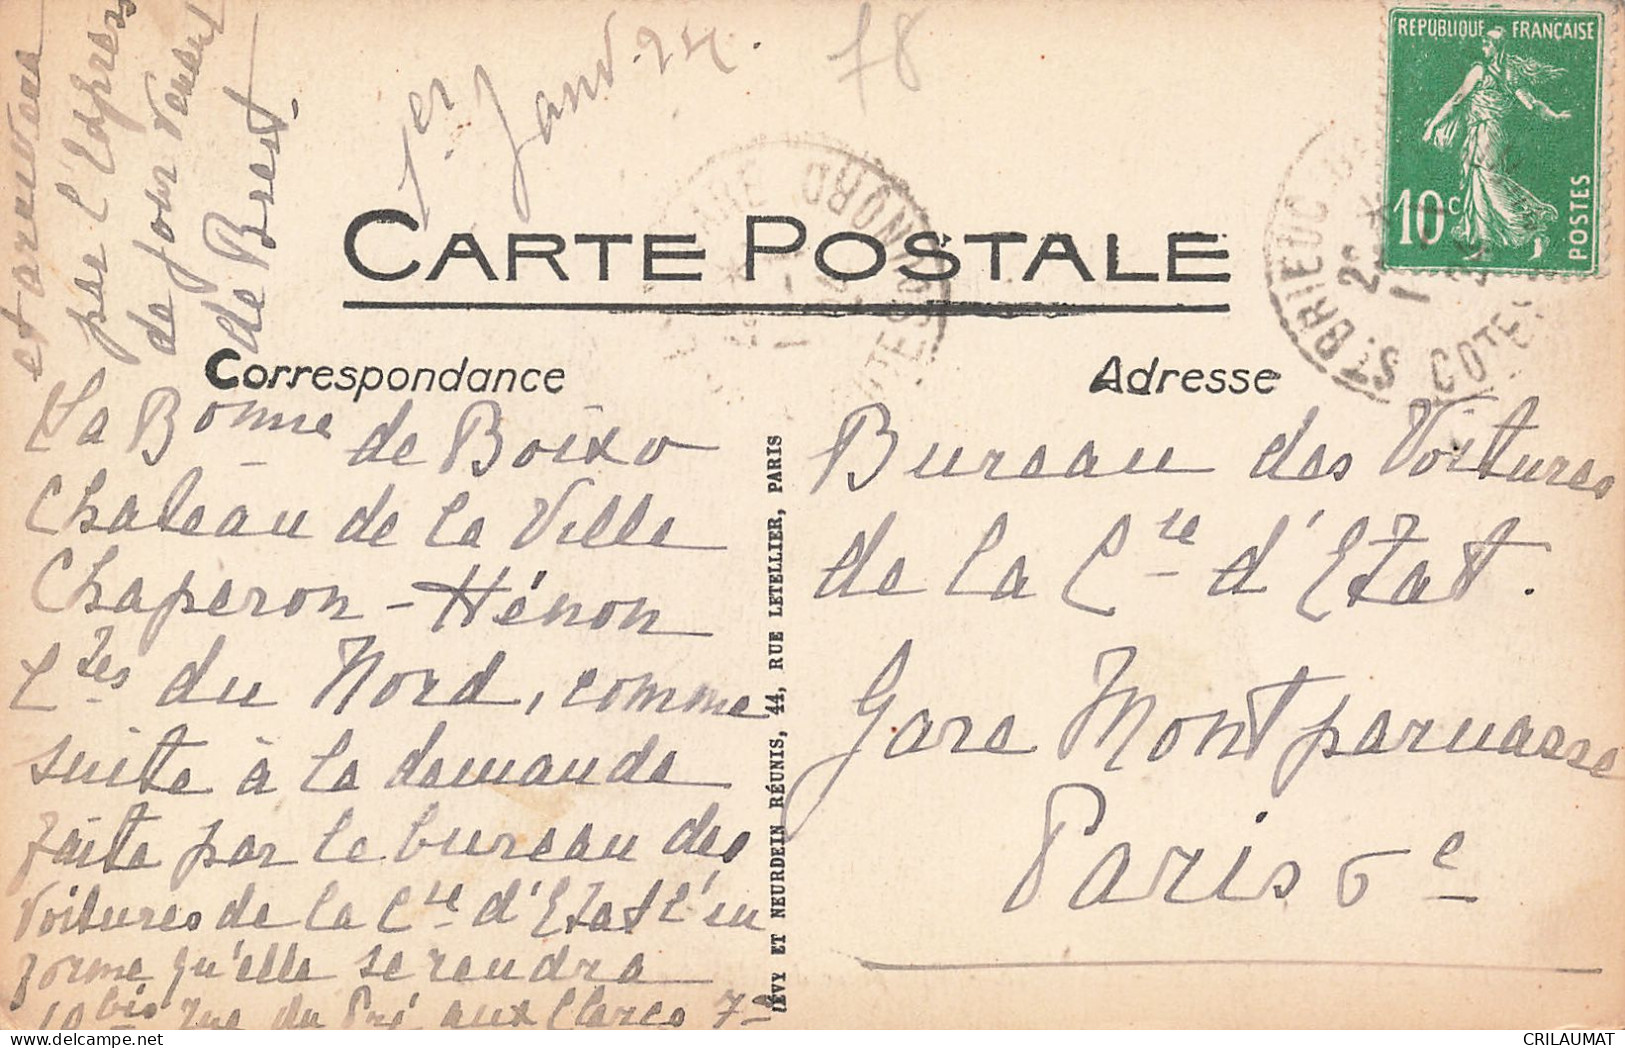 1er Janv. 24.
78
RÉPUBLIQUE FRANÇAISE
10c
POSTES
ST BRIEUC
COTES
DU NORD
CARTE POSTALE
Correspondance
Adresse
La Bonne de Boixo
Chateau de la Ville
Chaperon - Hénon
Ctes du Nord, comme
suite à la demande
faite par le bureau des
Voitures de la Cie d'Etat l'in
forme qu'elle se rendra
10bis rue du Pré aux Clercs 7e
et arrivera
par l'Express
de jour venant
de Brest.
LÉVY ET NEURDEIN RÉUNIS, 44, RUE LETELLIER, PARIS
Bureau des Voitures
de la Cie d'Etat.
Gare Montparnasse
Paris 6e
CRILAUMAT